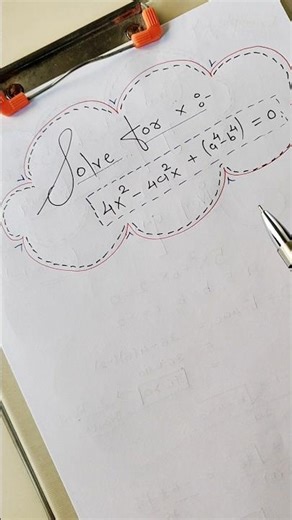 Solve for x :
4x² - 4a²x + (a⁴-b⁴) = 0.